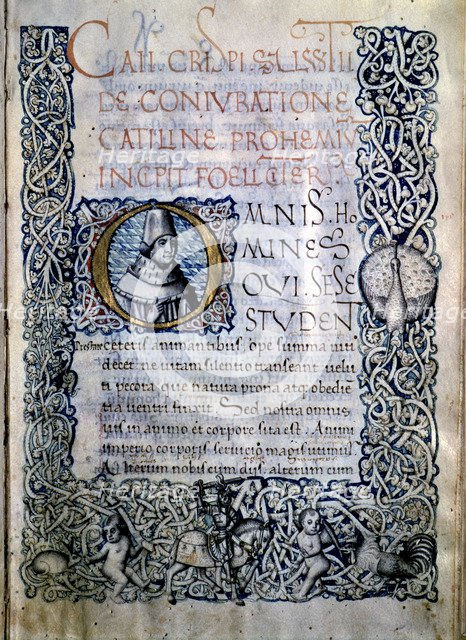 CAII CRISPI SALUSTII
DE CONIVRATIONE
CATILINE PROHEMIV
INCPIT FOELICITER
OMNIS HO
MINES
QVI SESE
STVDENT
ceteris animantibus, ope summa niti
decet ne vitam silentio transeant velu
ti pecora que natura prona atq; obedie
tia ventri finxit. Sed nostra omnis
vis in animo et corpore sita est. Animi
imperio corporis servicio magis utimur
Alterum nobis cum diis alterum cum